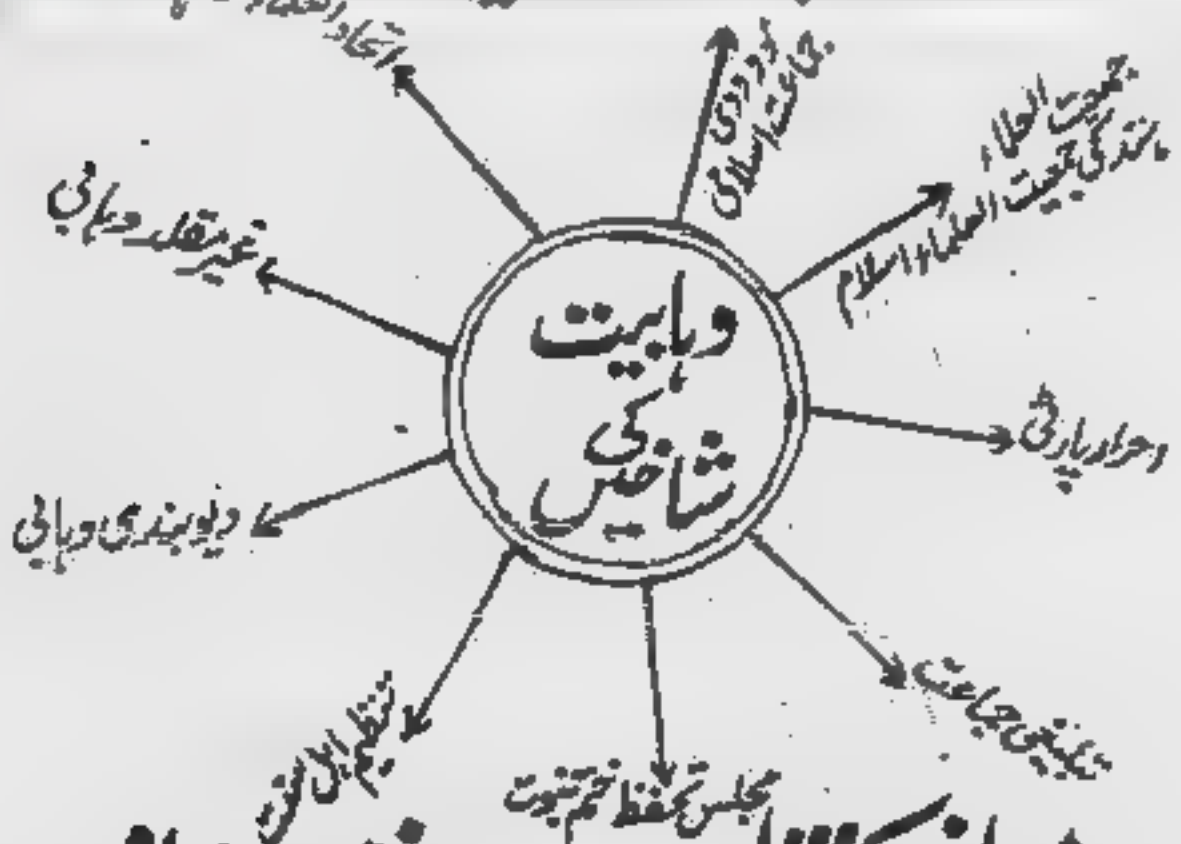 وہابیت
کی
شاخیں
مودودی
جماعت اسلامی
جمعیت العلماء
ماننگی جمعیت العلماء اسلام
احرار پارٹی
تبلیغی جماعت
مجلس تحفظ ختم نبوت
تنظیم اہل
دیوبندی وہابی
غیر مقلد وہابی
اتحاد